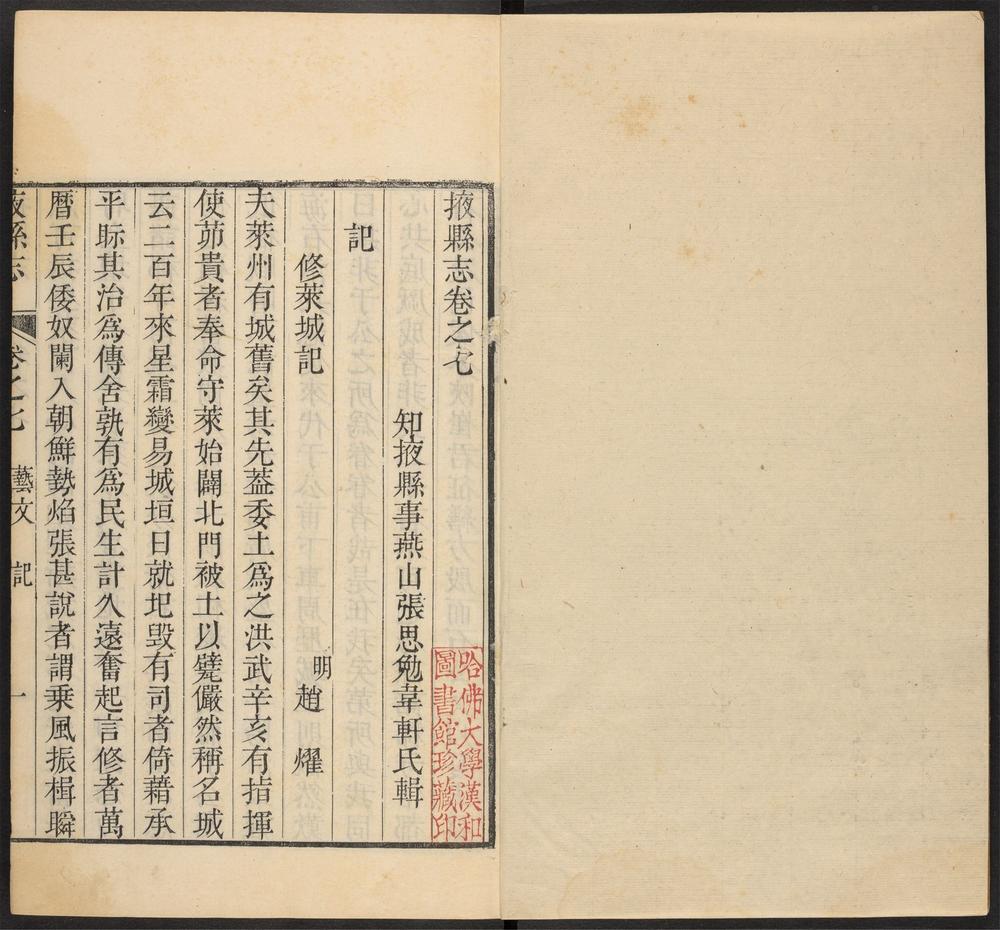 掖縣志卷之七
知掖縣事燕山張思勉葦軒氏輯
記
修萊城記
明趙燿
夫萊州有城舊矣其先葢委土爲之洪武辛亥有指揮
使茆貴者奉命守萊始闢北門被土以甓儼然稱名城
云二百年來星霜變易城垣日就圯毀有司者倚藉承
平眎其治爲傳舍孰有爲民生計久遠奮起言修者萬
曆壬辰倭奴闌入朝鮮勢焰張甚說者謂乘風振楫瞬
掖縣志
卷之七
藝文
記
一
哈佛大學漢和
圖書館珍藏印